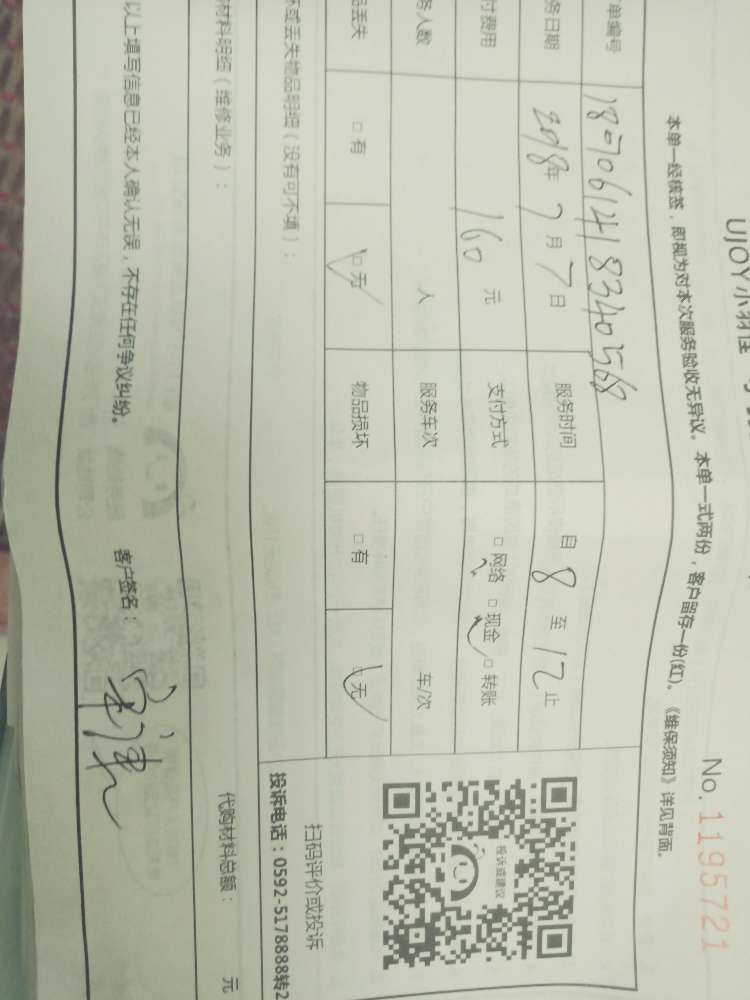 UJOY小羽佳
No. 1195721
本单一经核签，即视为对本次服务验收无异议。本单一式两份，客户留存一份(红)。《维保须知》详见背面。
单编号 180706141834 568
务日期 2018年7月7日 服务时间 自 8 至 12 止
付费用 160 元 支付方式 □ 网络 □ 现金 □ 转账
务人数 人 服务车次 车/次
品丢失 □ 有 □ 无 物品损坏 □ 有 □ 无
坏或丢失物品明细（没有可不填）：
投诉或建议
扫码评价或投诉
投诉电话：0592-5178888转2
材料明细（维修业务）： 代购材料总额： 元
以上填写信息已经本人确认无误，不存在任何争议纠纷。 客户签名：